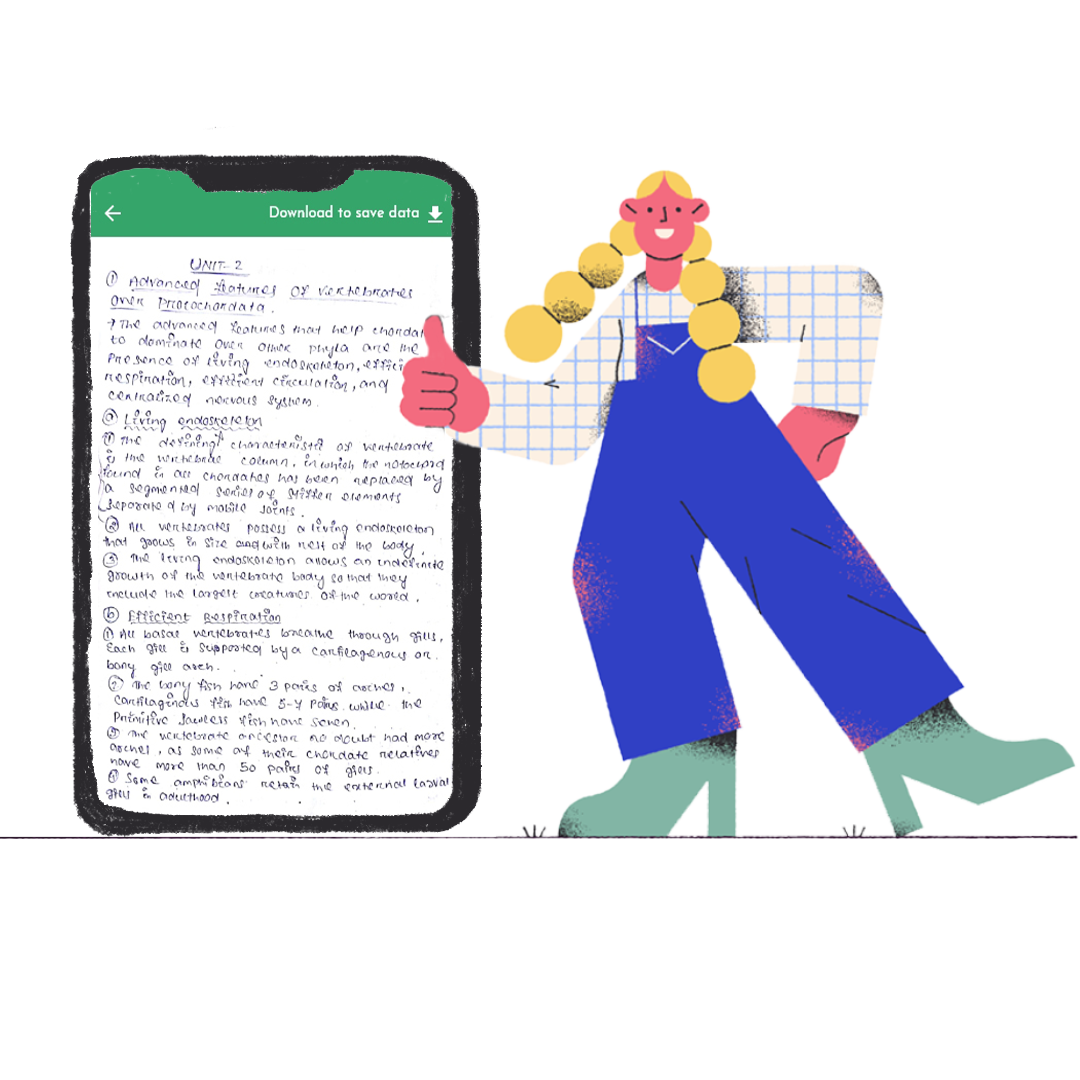 Download to save data
UNIT-2
① Advanced features of vertebrates
over Protochordata.
→ The advanced features that help chordat
to dominate over other phyla are the
Presence of living endoskeleton, effici
respiration, efficient circulation, and
centralized nervous system.
ⓐ Living endoskeleton
① The defining characteristi of vertebrate
is the vertebral column, in which the notocord
found in all chordates has been replaced by
a segmented series of stiffer elements
separated by mobile joints.
② All vertebrates possess a living endoskeleton
that grows in size and with rest of the body.
③ The living endoskeleton allows an indefinite
growth of the vertebrate body so that they
include the largest creatures of the world.
ⓑ Efficient Respiration
① All basal vertebrates breathe through gills.
Each gill is supported by a cartilagenous or
bony gill arch.
② The bony fish have 3 pairs of arches,
Cartilaginous fish have 5-7 Pairs while the
Primitive Jawless fish have seven.
③ The vertebrate ancestor no doubt had more
arches, as some of their chordate relatives
have more than 50 pairs of gills.
④ Some amphibians retain the external larval
gills in adulthood.